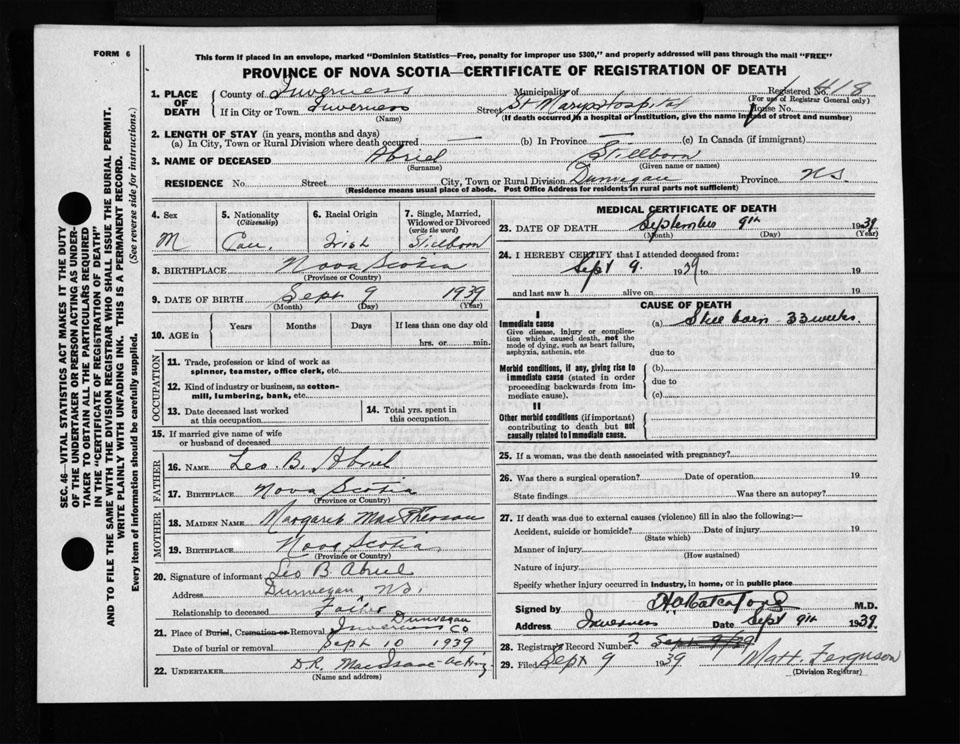 FORM 6
This form if placed in an envelope, marked "Dominion Statistics—Free, penalty for improper use $300," and properly addressed will pass through the mail "FREE"
PROVINCE OF NOVA SCOTIA—CERTIFICATE OF REGISTRATION OF DEATH
1. PLACE OF DEATH
County of Inverness
Municipality of
Registered No. 1418
(For use of Registrar General only)
If in City or Town Inverness
(Name)
Street St Marys Hospital House No.
(If death occurred in a hospital or institution, give the name instead of street and number)
2. LENGTH OF STAY (in years, months and days)
(a) In City, Town or Rural Division where death occurred — (b) In Province — (c) In Canada (if immigrant)
3. NAME OF DECEASED Abriel Stillborn
(Surname) (Given name or names)
RESIDENCE No. Street City, Town or Rural Division Dunvegan Province N.S.
(Residence means usual place of abode. Post Office Address for residents in rural parts not sufficient)
4. Sex
M
5. Nationality
(Citizenship)
Can.
6. Racial Origin
Irish
7. Single, Married, Widowed or Divorced
(write the word)
Stillborn
8. BIRTHPLACE Nova Scotia
(Province or Country)
9. DATE OF BIRTH Sept 9 1939
(Month) (Day) (Year)
10. AGE in Years Months Days If less than one day old
hrs. or min.
OCCUPATION
11. Trade, profession or kind of work as spinner, teamster, office clerk, etc.
12. Kind of industry or business, as cotton-mill, lumbering, bank, etc.
13. Date deceased last worked at this occupation
14. Total yrs. spent in this occupation
15. If married give name of wife or husband of deceased
FATHER
16. NAME Leo. B. Abriel
17. BIRTHPLACE Nova Scotia
(Province or Country)
MOTHER
18. MAIDEN NAME Margaret MacPherson
19. BIRTHPLACE Nova Scotia
(Province or Country)
20. Signature of informant Leo B Abriel
Address Dunvegan N.S.
Relationship to deceased Father
21. Place of Burial, Cremation or Removal Dunvegan
Inverness Co
Date of burial or removal Sept 10 1939
22. UNDERTAKER D.R. MacIsaac - Acting
(Name and address)
MEDICAL CERTIFICATE OF DEATH
23. DATE OF DEATH September 9th 1939
(Month) (Day) (Year)
24. I HEREBY CERTIFY that I attended deceased from:
Sept 9. 1939 to 19
and last saw h alive on 19
CAUSE OF DEATH
I
Immediate cause
Give disease, injury or complication which caused death, not the mode of dying, such as heart failure, asphyxia, asthenia, etc
(a) Still born - 33 weeks.
due to
Morbid conditions, if any, giving rise to immediate cause (stated in order proceeding backwards from immediate cause).
(b)
due to
(c)
II
Other morbid conditions (if important) contributing to death but not causally related to immediate cause.
25. If a woman, was the death associated with pregnancy?
26. Was there a surgical operation? Date of operation 19
State findings Was there an autopsy?
27. If death was due to external causes (violence) fill in also the following:—
Accident, suicide or homicide? Date of injury 19
(State which)
Manner of injury
(How sustained)
Nature of injury
Specify whether injury occurred in industry, in home, or in public place
Signed by M.D.
Address Inverness Date Sept 9th 1939.
28. Registrar's Record Number 2 Sept 9/39
29. Filed Sept 9 1939 Matt Ferguson
(Division Registrar)
SEC. 46—VITAL STATISTICS ACT MAKES IT THE DUTY
OF THE UNDERTAKER OR PERSON ACTING AS UNDER-
TAKER TO OBTAIN ALL THE PARTICULARS REQUIRED
IN THE "CERTIFICATE OF REGISTRATION OF DEATH"
AND TO FILE THE SAME WITH THE DIVISION REGISTRAR WHO SHALL ISSUE THE BURIAL PERMIT.
WRITE PLAINLY WITH UNFADING INK. THIS IS A PERMANENT RECORD.
Every item of information should be carefully supplied. (See reverse side for instructions.)